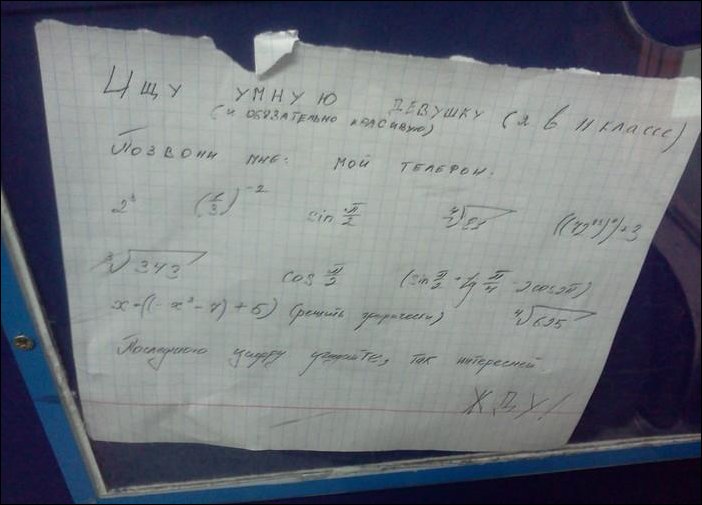 Ищу умную девушку (я в 11 классе)
(и обязательно красивую)
Позвони мне: мой телефон:
2³ (1/3)⁻² sin π/2
∛343 cos π/2 (sin π/2 + tg π/4 - 2cos2π)
(решить графически) ⁴√625
Последнюю цифру угадайте, так интересней
ЖДУ!